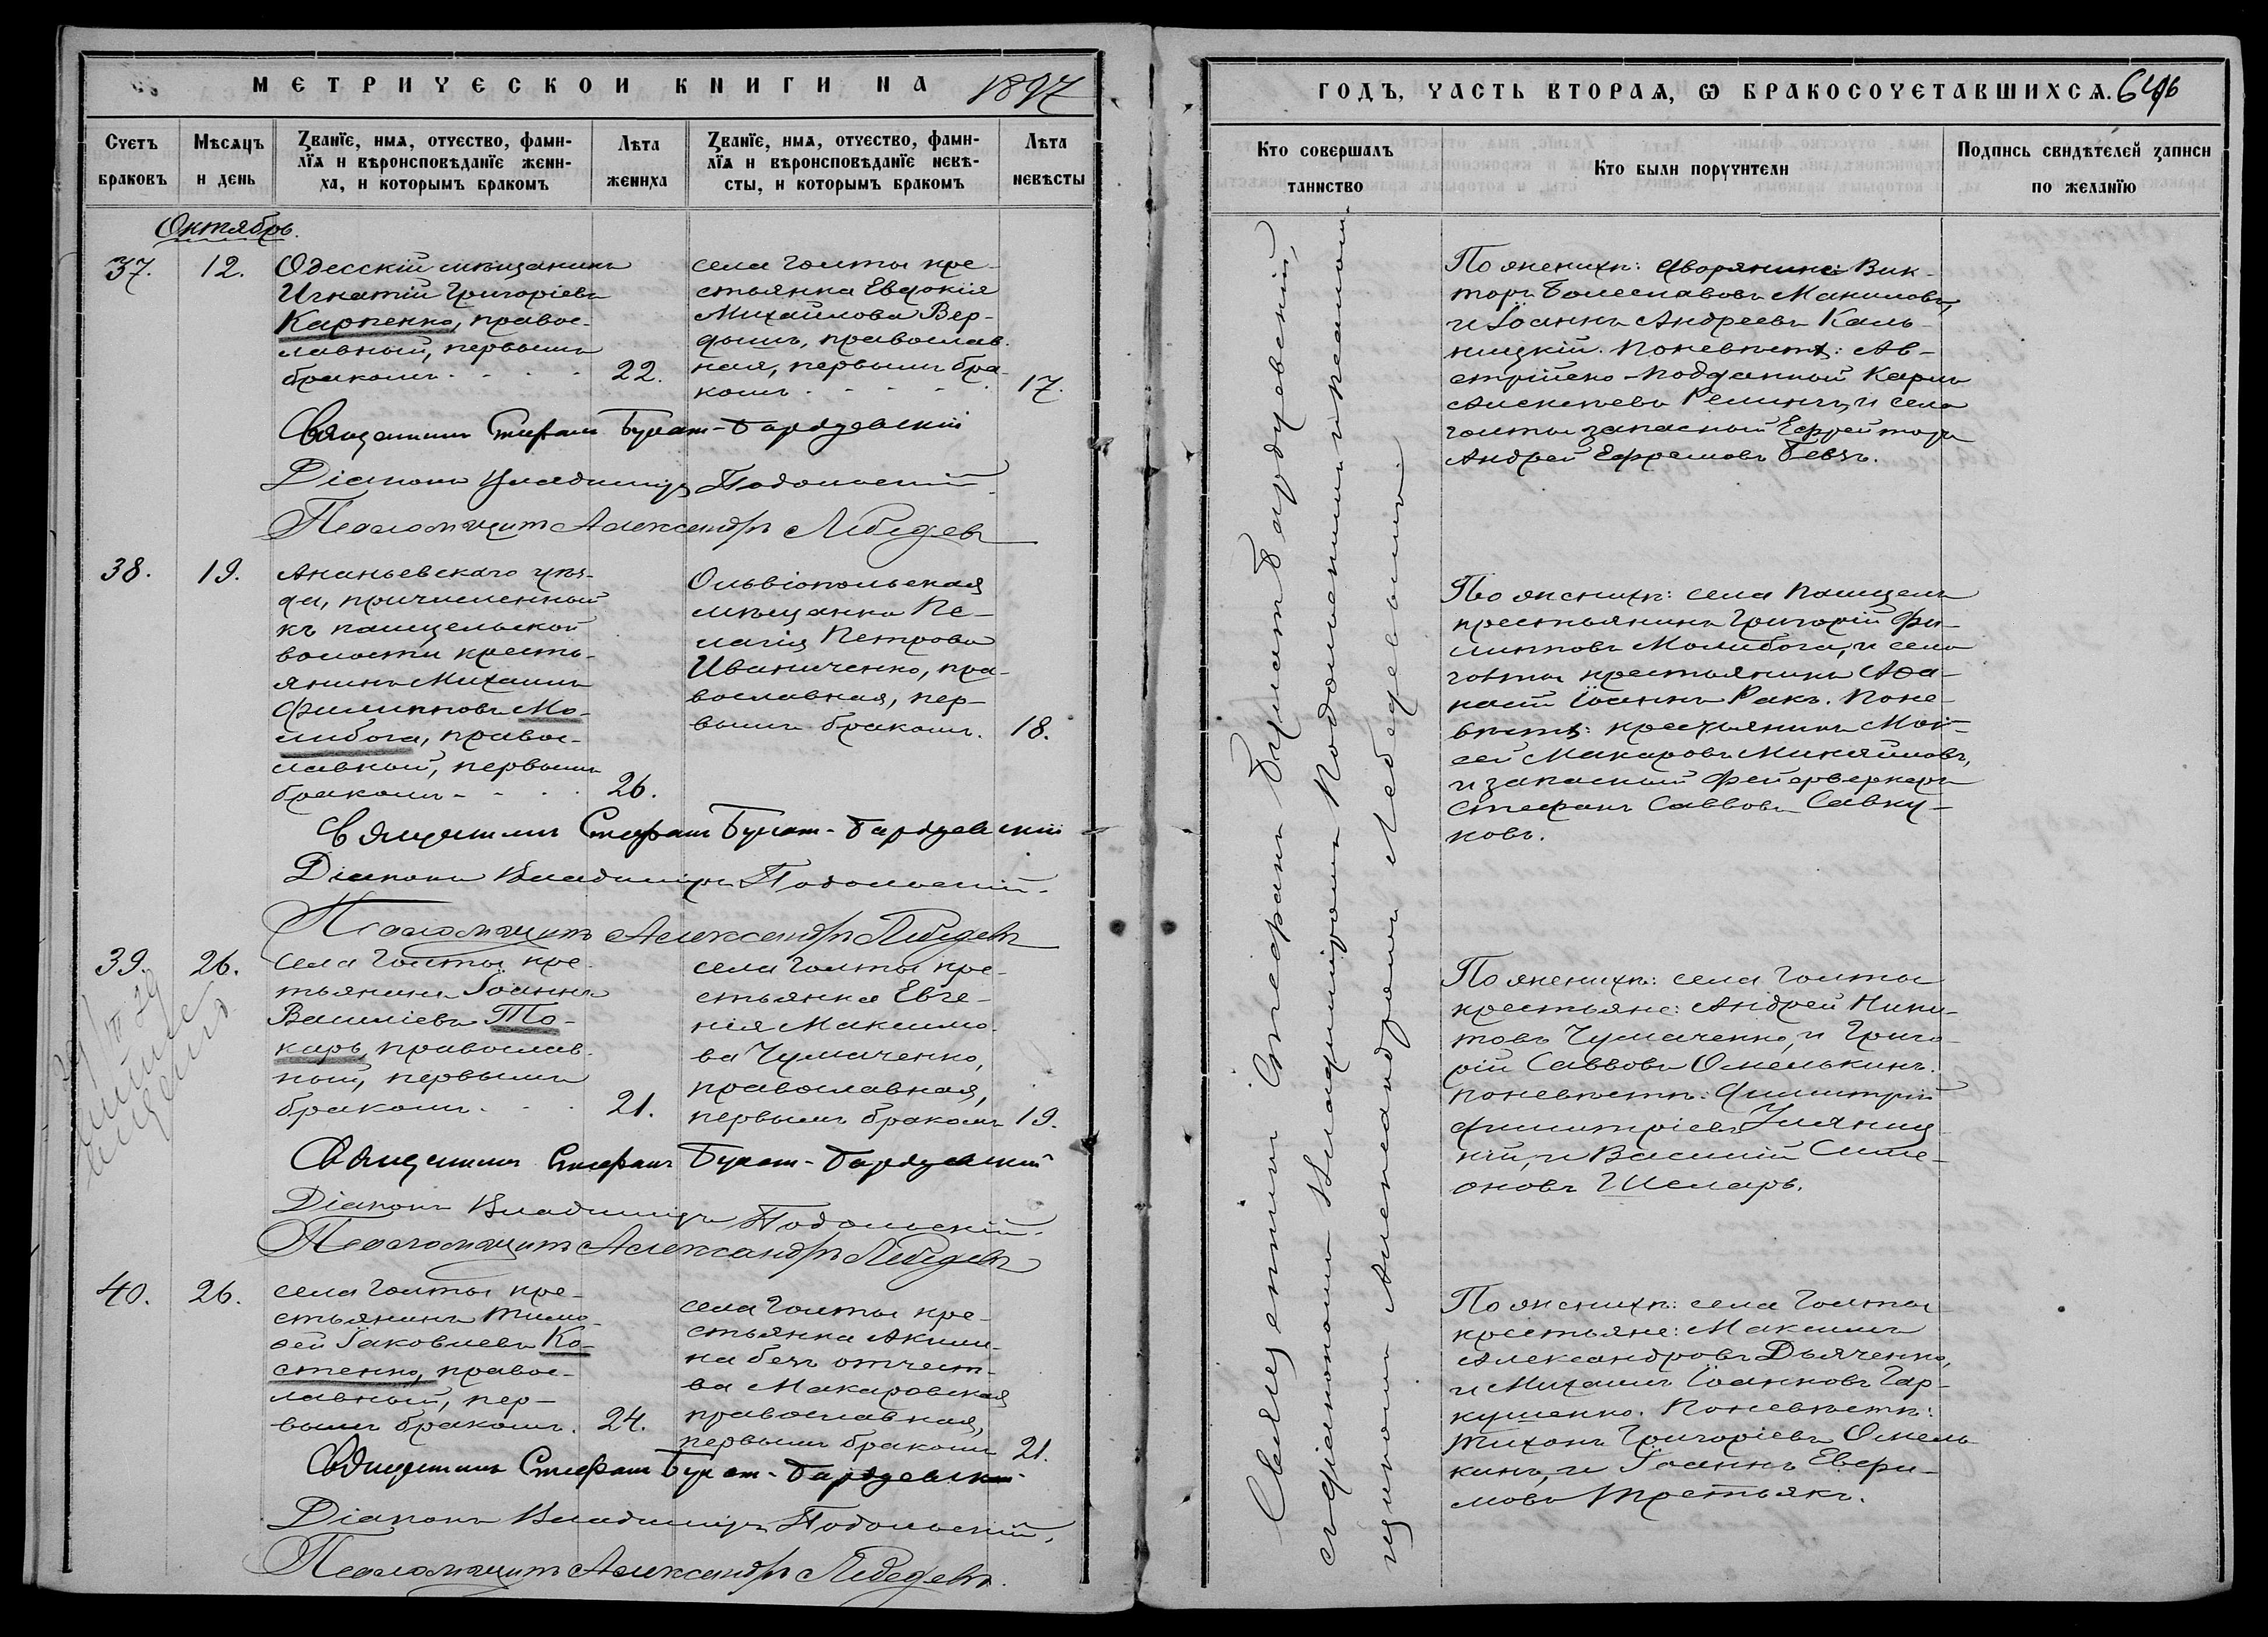 МЕТРИЧЕСКОЙ КНИГИ НА 1897
Счетъ браковъ
Мѣсяцъ и день
Званїе, имя, отчество, фамилїя и вѣроисповѣданїе жениха, и которымъ бракомъ
Лѣта жениха
Званїе, имя, отчество, фамилїя и вѣроисповѣданїе невѣсты, и которымъ бракомъ
Лѣта невѣсты
Октябрь.
37. 12.
Одесскій мѣщанинъ
Игнатій Григоріевъ
Карпенко, правос-
лавный, первымъ
бракомъ 22.
села Голты кре-
стьянка Евдокія
Михайлова Вер-
дышъ, православ-
ная, первымъ бра-
комъ 17.
Священникъ Стефанъ Булат-Бардуевскій
Діаконъ Владиміръ Подольскій.
Псаломщикъ Александръ Лебедевъ
38. 19.
Ананьевскаго уѣз-
да, причисленный
къ
волости кресть-
янинъ Михаилъ
Филипповъ Мо-
либога, правос-
лавный, первымъ
бракомъ 26.
Ольвіопольская
мѣщанка Пе-
лагія Петрова
Иваниченко, пра-
вославная, пер-
вымъ бракомъ. 18.
Священникъ Стефанъ Булат-Бардуевскій
Діаконъ Владиміръ Подольскій.
Псаломщикъ Александръ Лебедевъ
39. 26.
села Голты кре-
тьянинъ Іоаннъ
Василіевъ То-
карь, православ-
ный, первымъ
бракомъ 21.
села Голты кре-
стьянка Евге-
нія Максимо-
ва Чумаченко,
православная,
первымъ бракомъ 19.
Священникъ Стефанъ Булат-Бардуевскій
Діаконъ Владиміръ Подольскій.
Псаломщикъ Александръ Лебедевъ
40. 26.
села Голты кре-
стьянинъ Тимо-
ѳей Іаковлевъ Ко-
стенко, правос-
лавный, пер-
вымъ бракомъ. 24.
села Голты кре-
стьянка Акили-
на безъ отчест-
ва Макаровская
православная,
первымъ бракомъ 21.
Священникъ Стефанъ Булат-Бардуевскій
Діаконъ Владиміръ Подольскій.
Псаломщикъ Александръ Лебедевъ.
ГОДЪ, ЧАСТЬ ВТОРАЯ, Ѡ БРАКОСОЧЕТАВШИХСЯ.
Кто совершалъ таинство
Кто были поручители
Подпись свидѣтелей записи по желанїю
Священникъ Стефанъ Булатъ Бардуевскій,
съ діакономъ Владиміромъ Подольскимъ и псалом-
щикомъ Александромъ Лебедевымъ.
По женихѣ: дворянинъ Вик-
торъ Болеславовъ Макиловъ,
и Іоаннъ Андреевъ Каль-
ницкій. По невѣстѣ: Ав-
стрійско-подданный Карлъ
Алексѣевъ и села
Голты запасный Ефрейторъ
Андрей Ефремовъ Бевзъ.
По женихѣ: села
крестьянинъ Григорій Фи-
липповъ Молибога, и села
Голты крестьянинъ Аѳа-
насій Іоаннъ Ракъ. По не-
вѣстѣ: крестьянинъ Мой-
сей Макаровъ Михайловъ,
и запасный фейерверкеръ
Стефанъ Саввовъ Савчу-
ковъ.
По женихѣ: села Голты
крестьяне: Андрей Ники-
товъ Чумаченко, и Григо-
рій Саввовъ Омелькинъ.
по невѣстѣ: Димитрій
Димитріевъ Уляниц-
кій, и Василій Симе-
оновъ Шеларь.
По женихѣ: села Голты
крестьяне: Максимъ
Александровъ Дьяченко,
и Михаилъ Іоанновъ Гар-
кушенко. По невѣстѣ:
Тихонъ Григоріевъ Омель-
кинъ, и Іоаннъ Евфи-
мовъ Третьякъ.